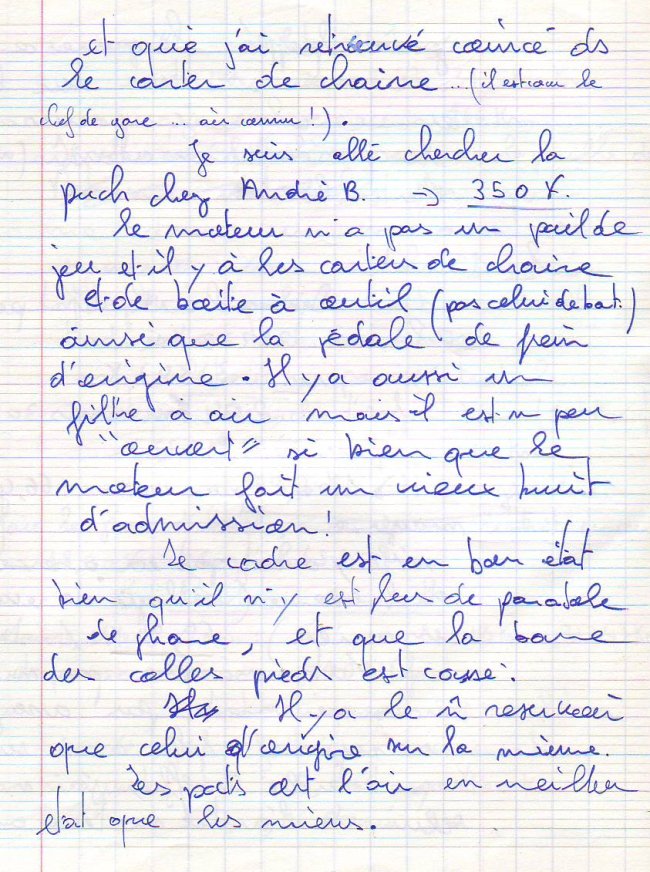 et que j'ai retrouvé coincé ds
le carter de chaine ... (il est con le
chef de gare ... air connu !).
Je suis allé chercher la
puch chez André B. → 350 F.
le moteur n'a pas un poil de
jeu et il y à les carters de chaine
et de boite à outil (pas celui de bat.)
ainsi que la pédale de frein
d'origine. Il y a aussi un
filtre à air mais il est un peu
"ouvert" si bien que le
moteur fait un vieux bruit
d'admission !
Le cadre est en bon état
bien qu'il n'y est de parabole
de phare, et que la barre
des calles pieds est cassé.
Il y a le m̂ reservoir
que celui d'origine sur la mienne.
Les pots ont l'air en meilleur
etat que les miens.